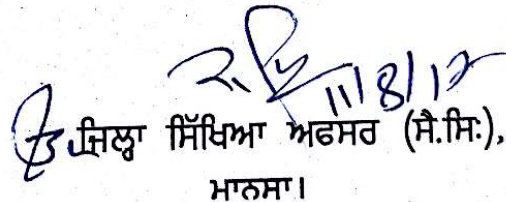 11/8/17
ਜ਼ਿਲ੍ਹਾ ਸਿੱਖਿਆ ਅਫਸਰ (ਸੈ.ਸਿ:),
ਮਾਨਸਾ।